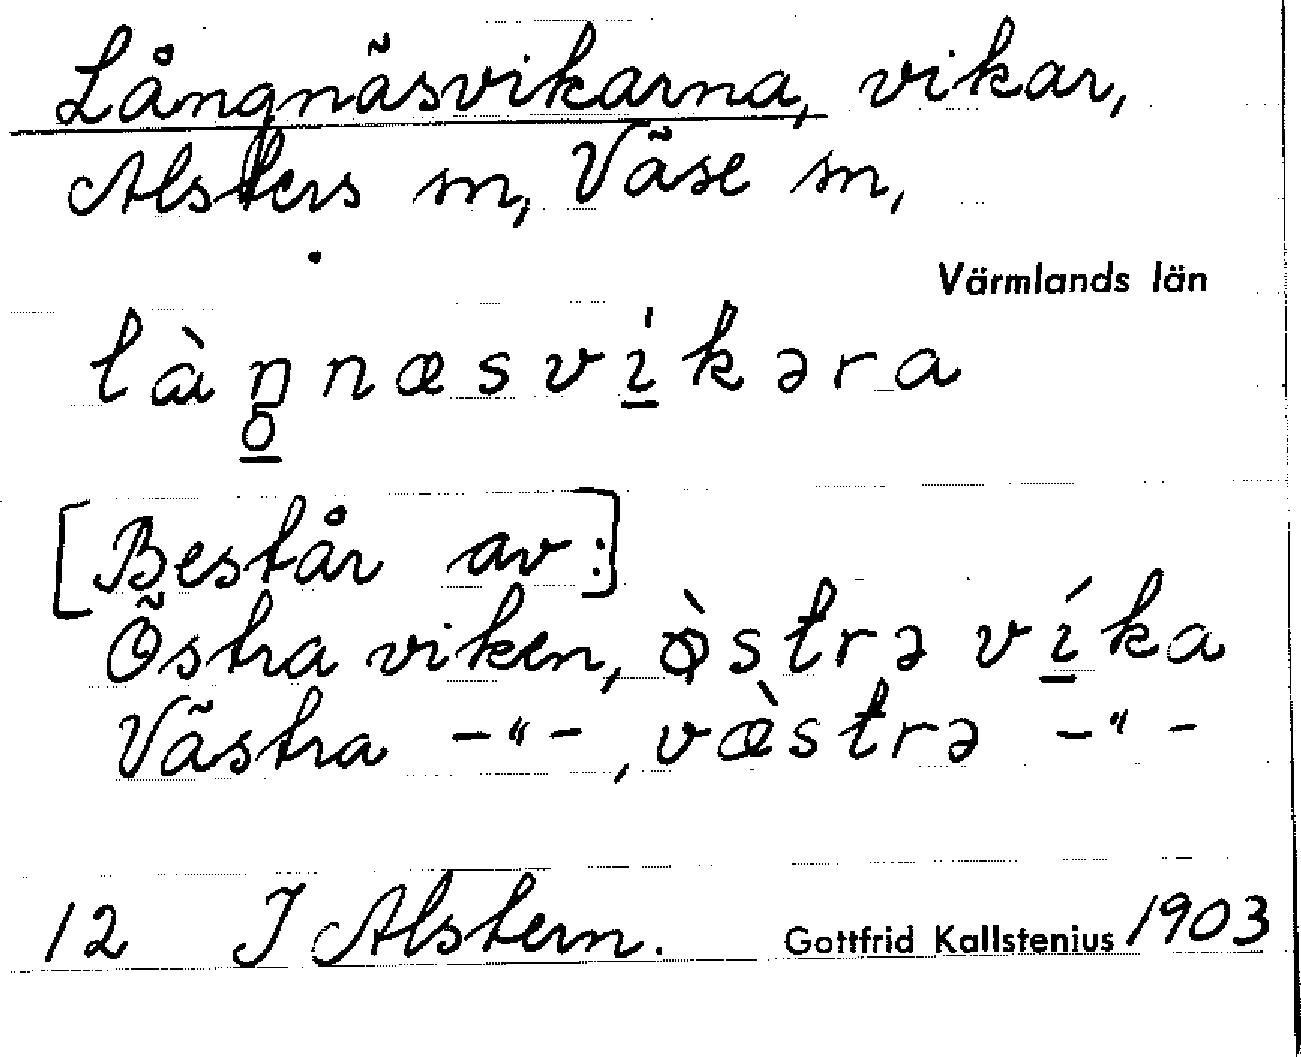 Långnäsvikarna, vikar,
Alsters sn, Väse sn,
Värmlands län
làŋnæsvíkəra
o
[Består av:]
Östra viken, òstrə víka
Västra –"–, væ̀strə –"–
12 I Alstern. Gottfrid Kallstenius 1903